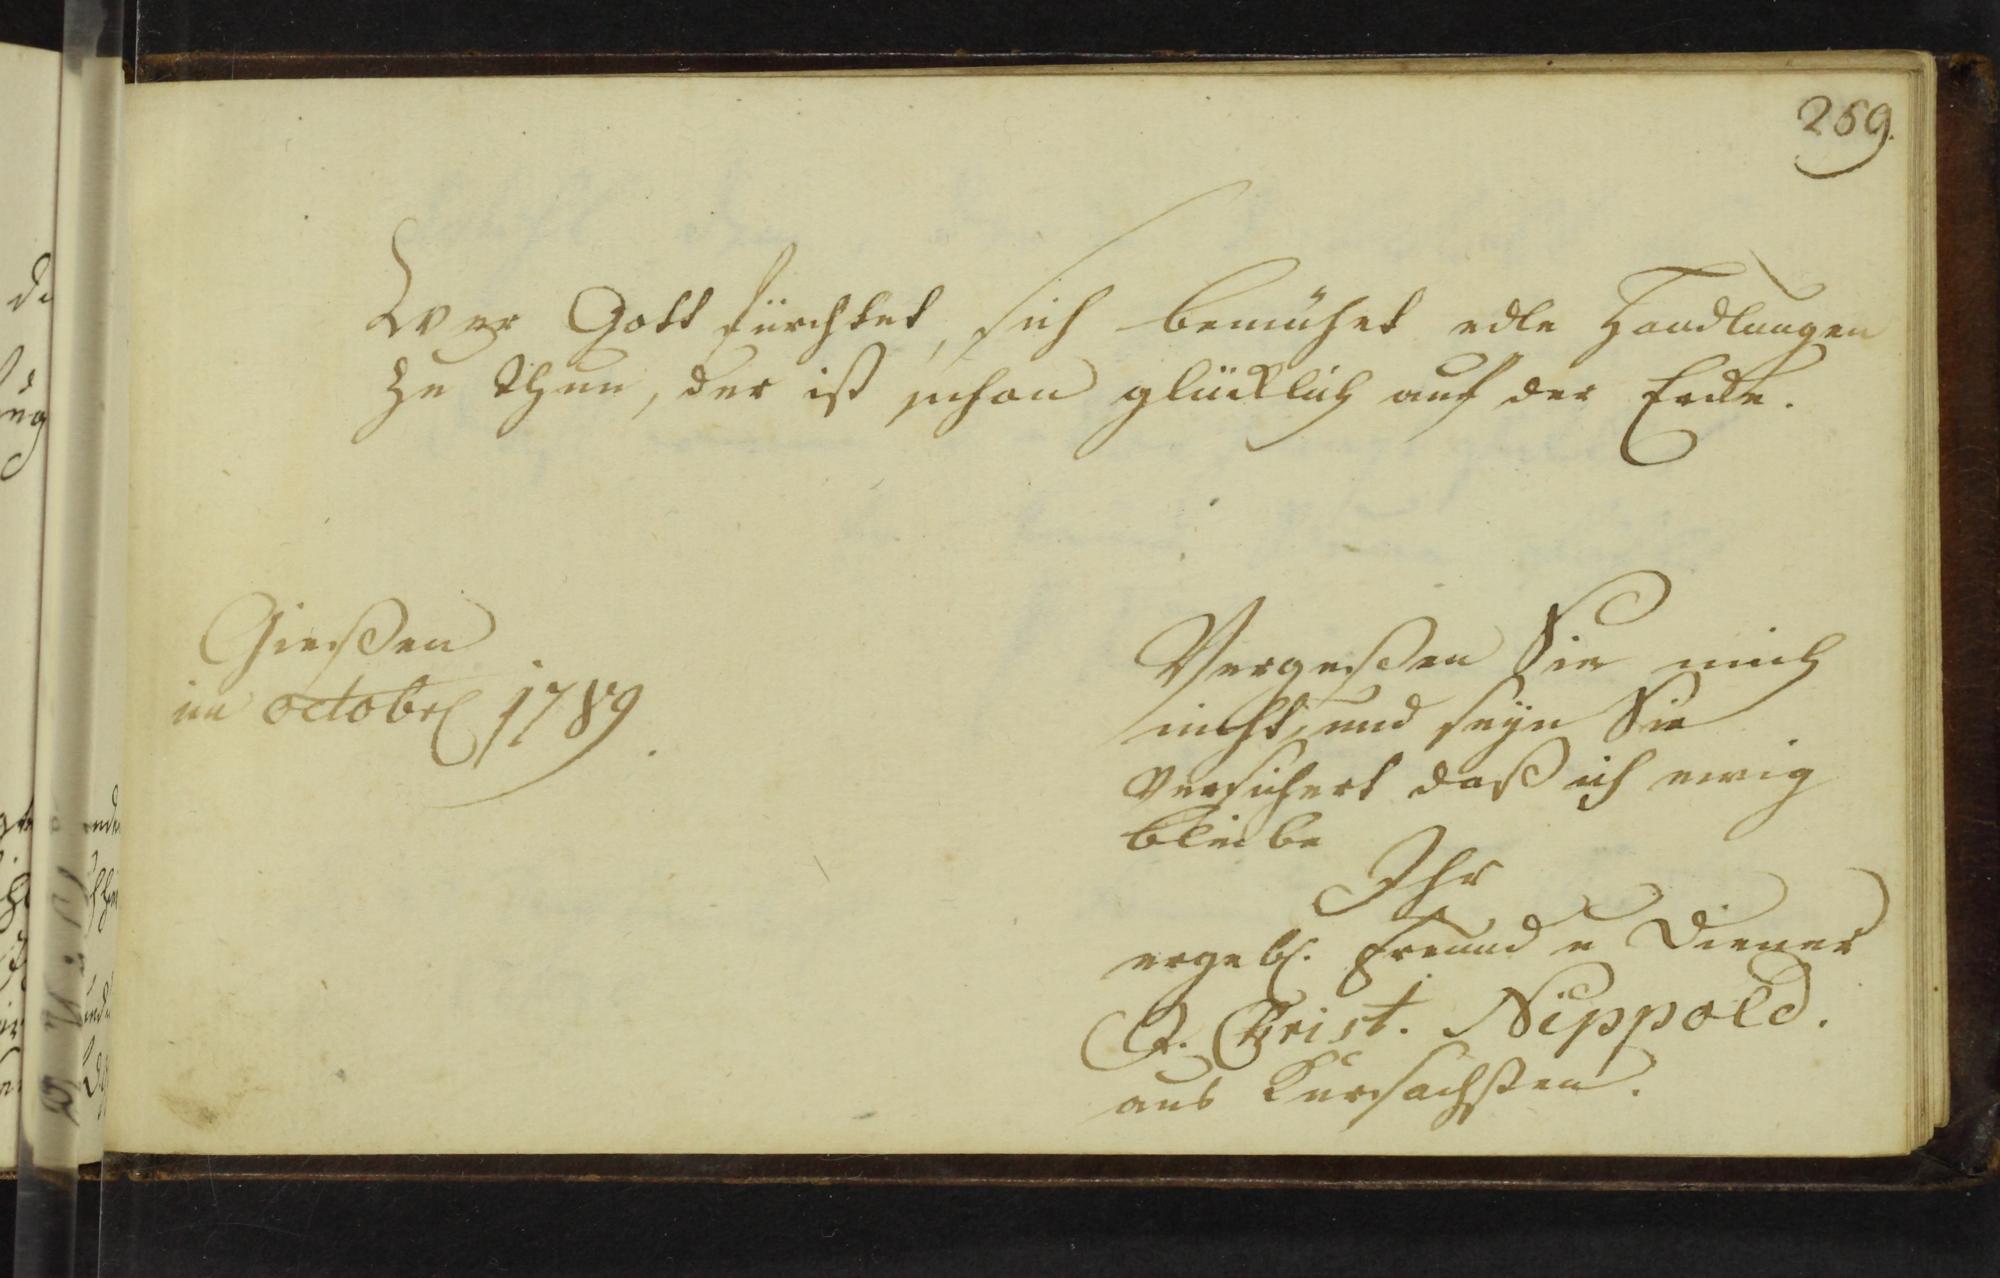 269.
Wer Gott fürchtet, sich bemühet edle Handlungen
zu thun, der ist schon glücklich auf der Erde.
Gießen
im octobr 1789.
Vergeßen Sie mich
nicht, und seyn Sie
versichert daß ich ewig
bleibe
Ihr
ergebs. Freund u Diener
Christ. Nippold.
aus Kursachßen.